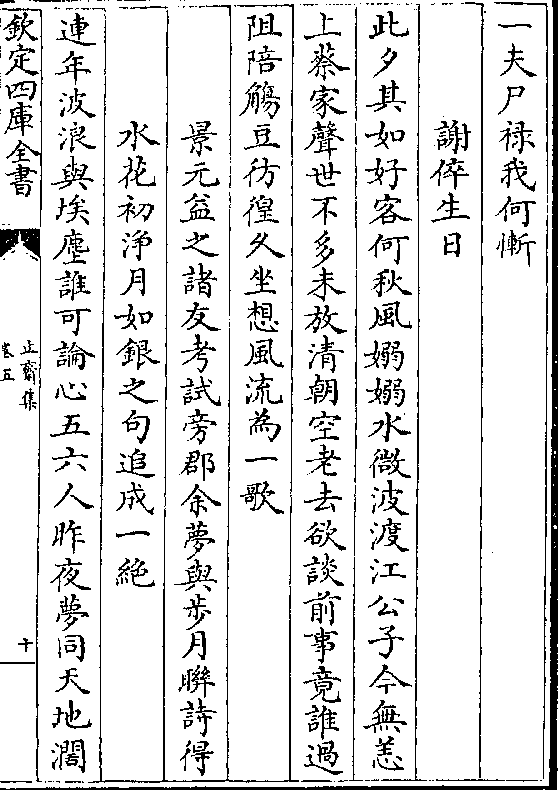 一夫尸禄我何慚
謝倅生日
此夕其如好客何秋風嫋嫋水微波渡江公子今無恙
上蔡家聲世不多未放清朝空老去欲談前事竟誰過
阻陪觴豆彷徨久坐想風流為一歌
景元益之諸友考試旁郡余夢與歩月聨詩得
水花初淨月如銀之句追成一絶
連年波浪與埃塵誰可論心五六人昨夜夢同天地濶
欽定四庫全書
止齋集
卷五
十